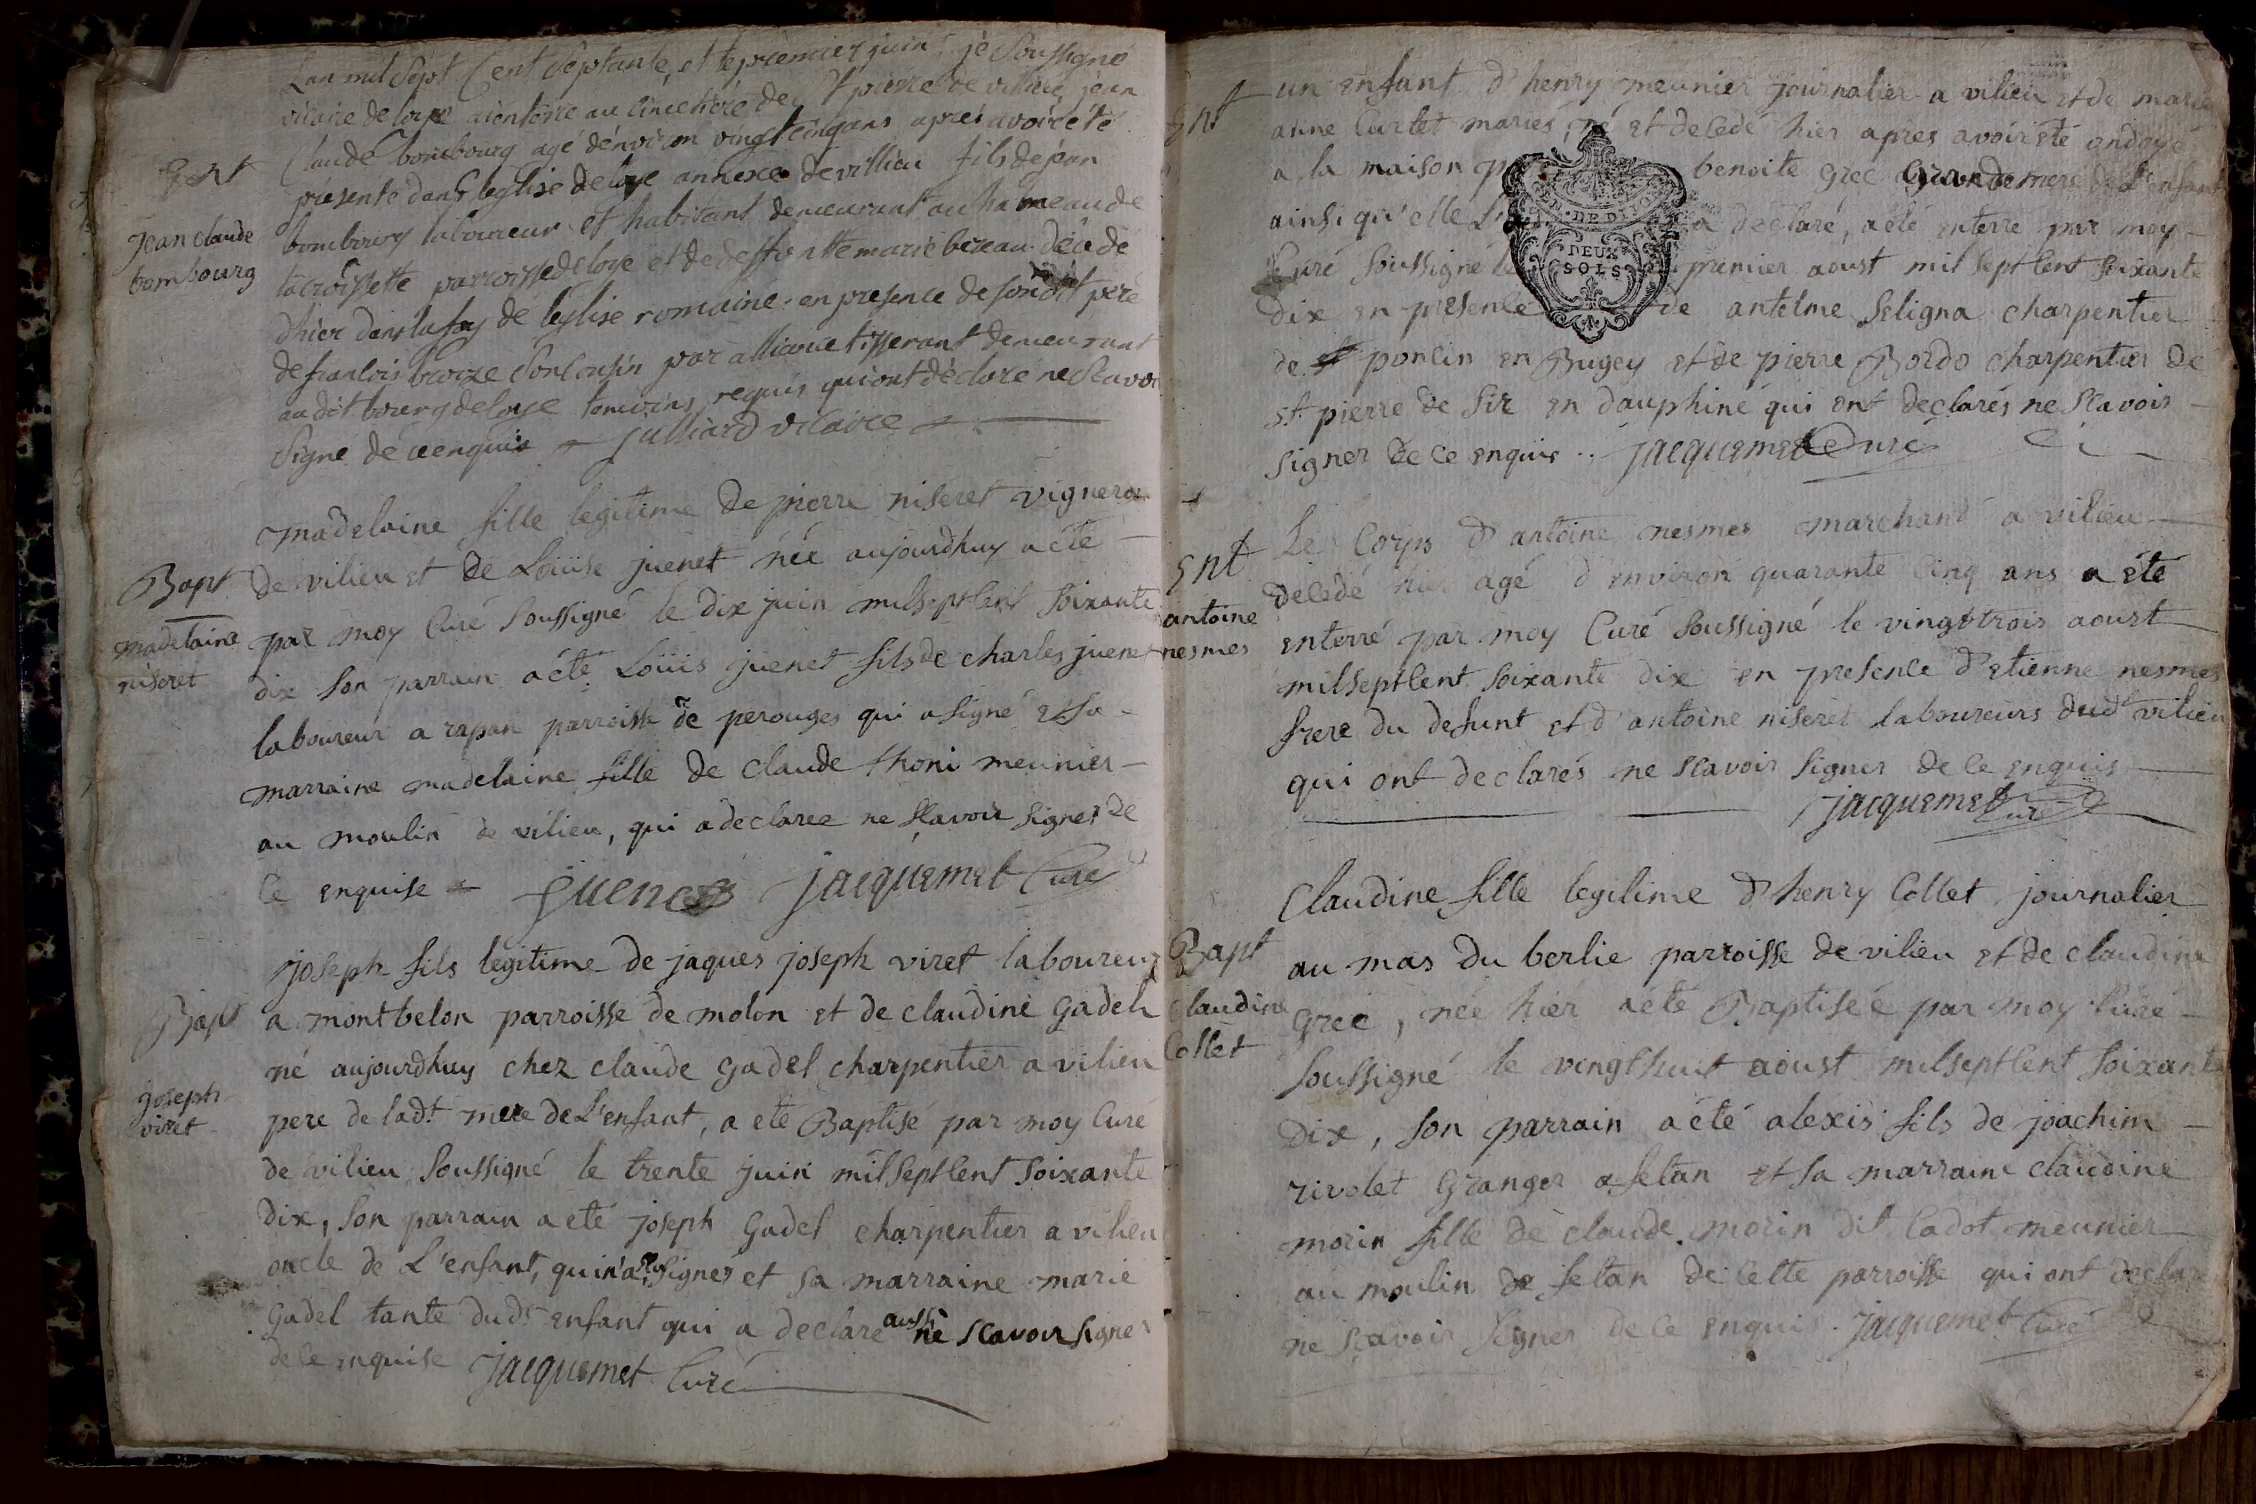 L'an mil sept cent septante, et le premier juin, je soussigné
vicaire de loye ai enterré au cimetière de St pierre de villieu jean
Ent
Claude bombourg agé d'environ vingt cinq ans après avoir été
présenté dans l'eglise de loye annexe de villieu fils de jean
jean claude
bombourg
bombourg laboureur et habitant demeurant au hameau de
la croisette parroisse de loye et de deffunte marie bereau décédé
d'hier dans la foy de l'église romaine en presence de son dit père
de francois broize son cousin par alliance tisserant demeurant
au dit bourg de loye temoins requis qui ont déclaré ne scavoir
signé de ce enquis julliard vicaire
madelaine fille legitime de pierre niseret vigneron
Bapt
de vilieu et de Louise juenet née aujourdhuy a été
par moy Curé soussigné le dix juin milseptcent soixante
madelaine
niseret
dix son parrain a été Louis juenet fils de charles juenet
laboureur a rapan parroisse de perouges qui a signé et sa
marraine madelaine fille de claude thoni meunier
au moulin de vilieu, qui a declaree ne scavoir signer de
ce enquise juenet jacquemet Curé
joseph fils legitime de jaques joseph viret laboureur
Bapt
a montbelon parroisse de molon et de claudine gadel
né aujourdhuy chez claude gadel charpentier a vilieu
joseph
viret
pere de lad.t mere de L'enfant, a eté Baptisé par moy Curé
de vilieu soussigné le trente juin milseptcent soixante
dix, son parrain a eté joseph gadel charpentier a vilieu
oncle de L'enfant, qui n'a sçu signer et sa marraine marie
gadel tante dud.t enfant qui a declaré aussi ne scavoir signer
de ce enquise jacquemet Curé
Ent
un enfant d'henry meunier journalier a vilieu et de marie
anne Curtet mariés, né et decedé hier apres avoir eté ondoyé
a la maison benoite grec grande mere de L'enfant
ainsi qu'elle declaré, a eté enterré par moy
Curé soussigné le premier aoust mil septcent soixante
dix en presence de antelme seligna charpentier
de poncin en Bugey et de pierre Bordo charpentier de
st pierre de sir en dauphiné qui ont declarés ne scavoir
signer de ce enquis .. jacquemet Curé
GEN. DE DIJON
DEUX
SOLS
Le Corps d'antoine nesmes marchand a vilieu
Ent
decedé hier agé d'environ quarante cinq ans a été
antoine
nesmes
enterré par moy Curé soussigné le vingt trois aoust
milseptcent soixante dix en presence d'etienne nesmes
frere du defunt et d'antoine niseret laboureurs dud.t vilieu
qui ont declarés ne scavoir signer de ce enquis
jacquemet Curé
Claudine fille legitime d'henry Collet journalier
Bapt
au mas du berlie parroisse de vilieu et de claudine
claudine
Collet
grec, née hier a été Baptisée par moy Curé
soussigné le vingt huit aoust milseptcent soixante
dix, son parrain a été alexis fils de joachim
rivolet granger a setan et sa marraine claudine
morin fille de claude morin dit Cadot meunier
au moulin de setan de cette parroisse qui ont declaré
ne scavoir signer de ce enquis. jacquemet Curé